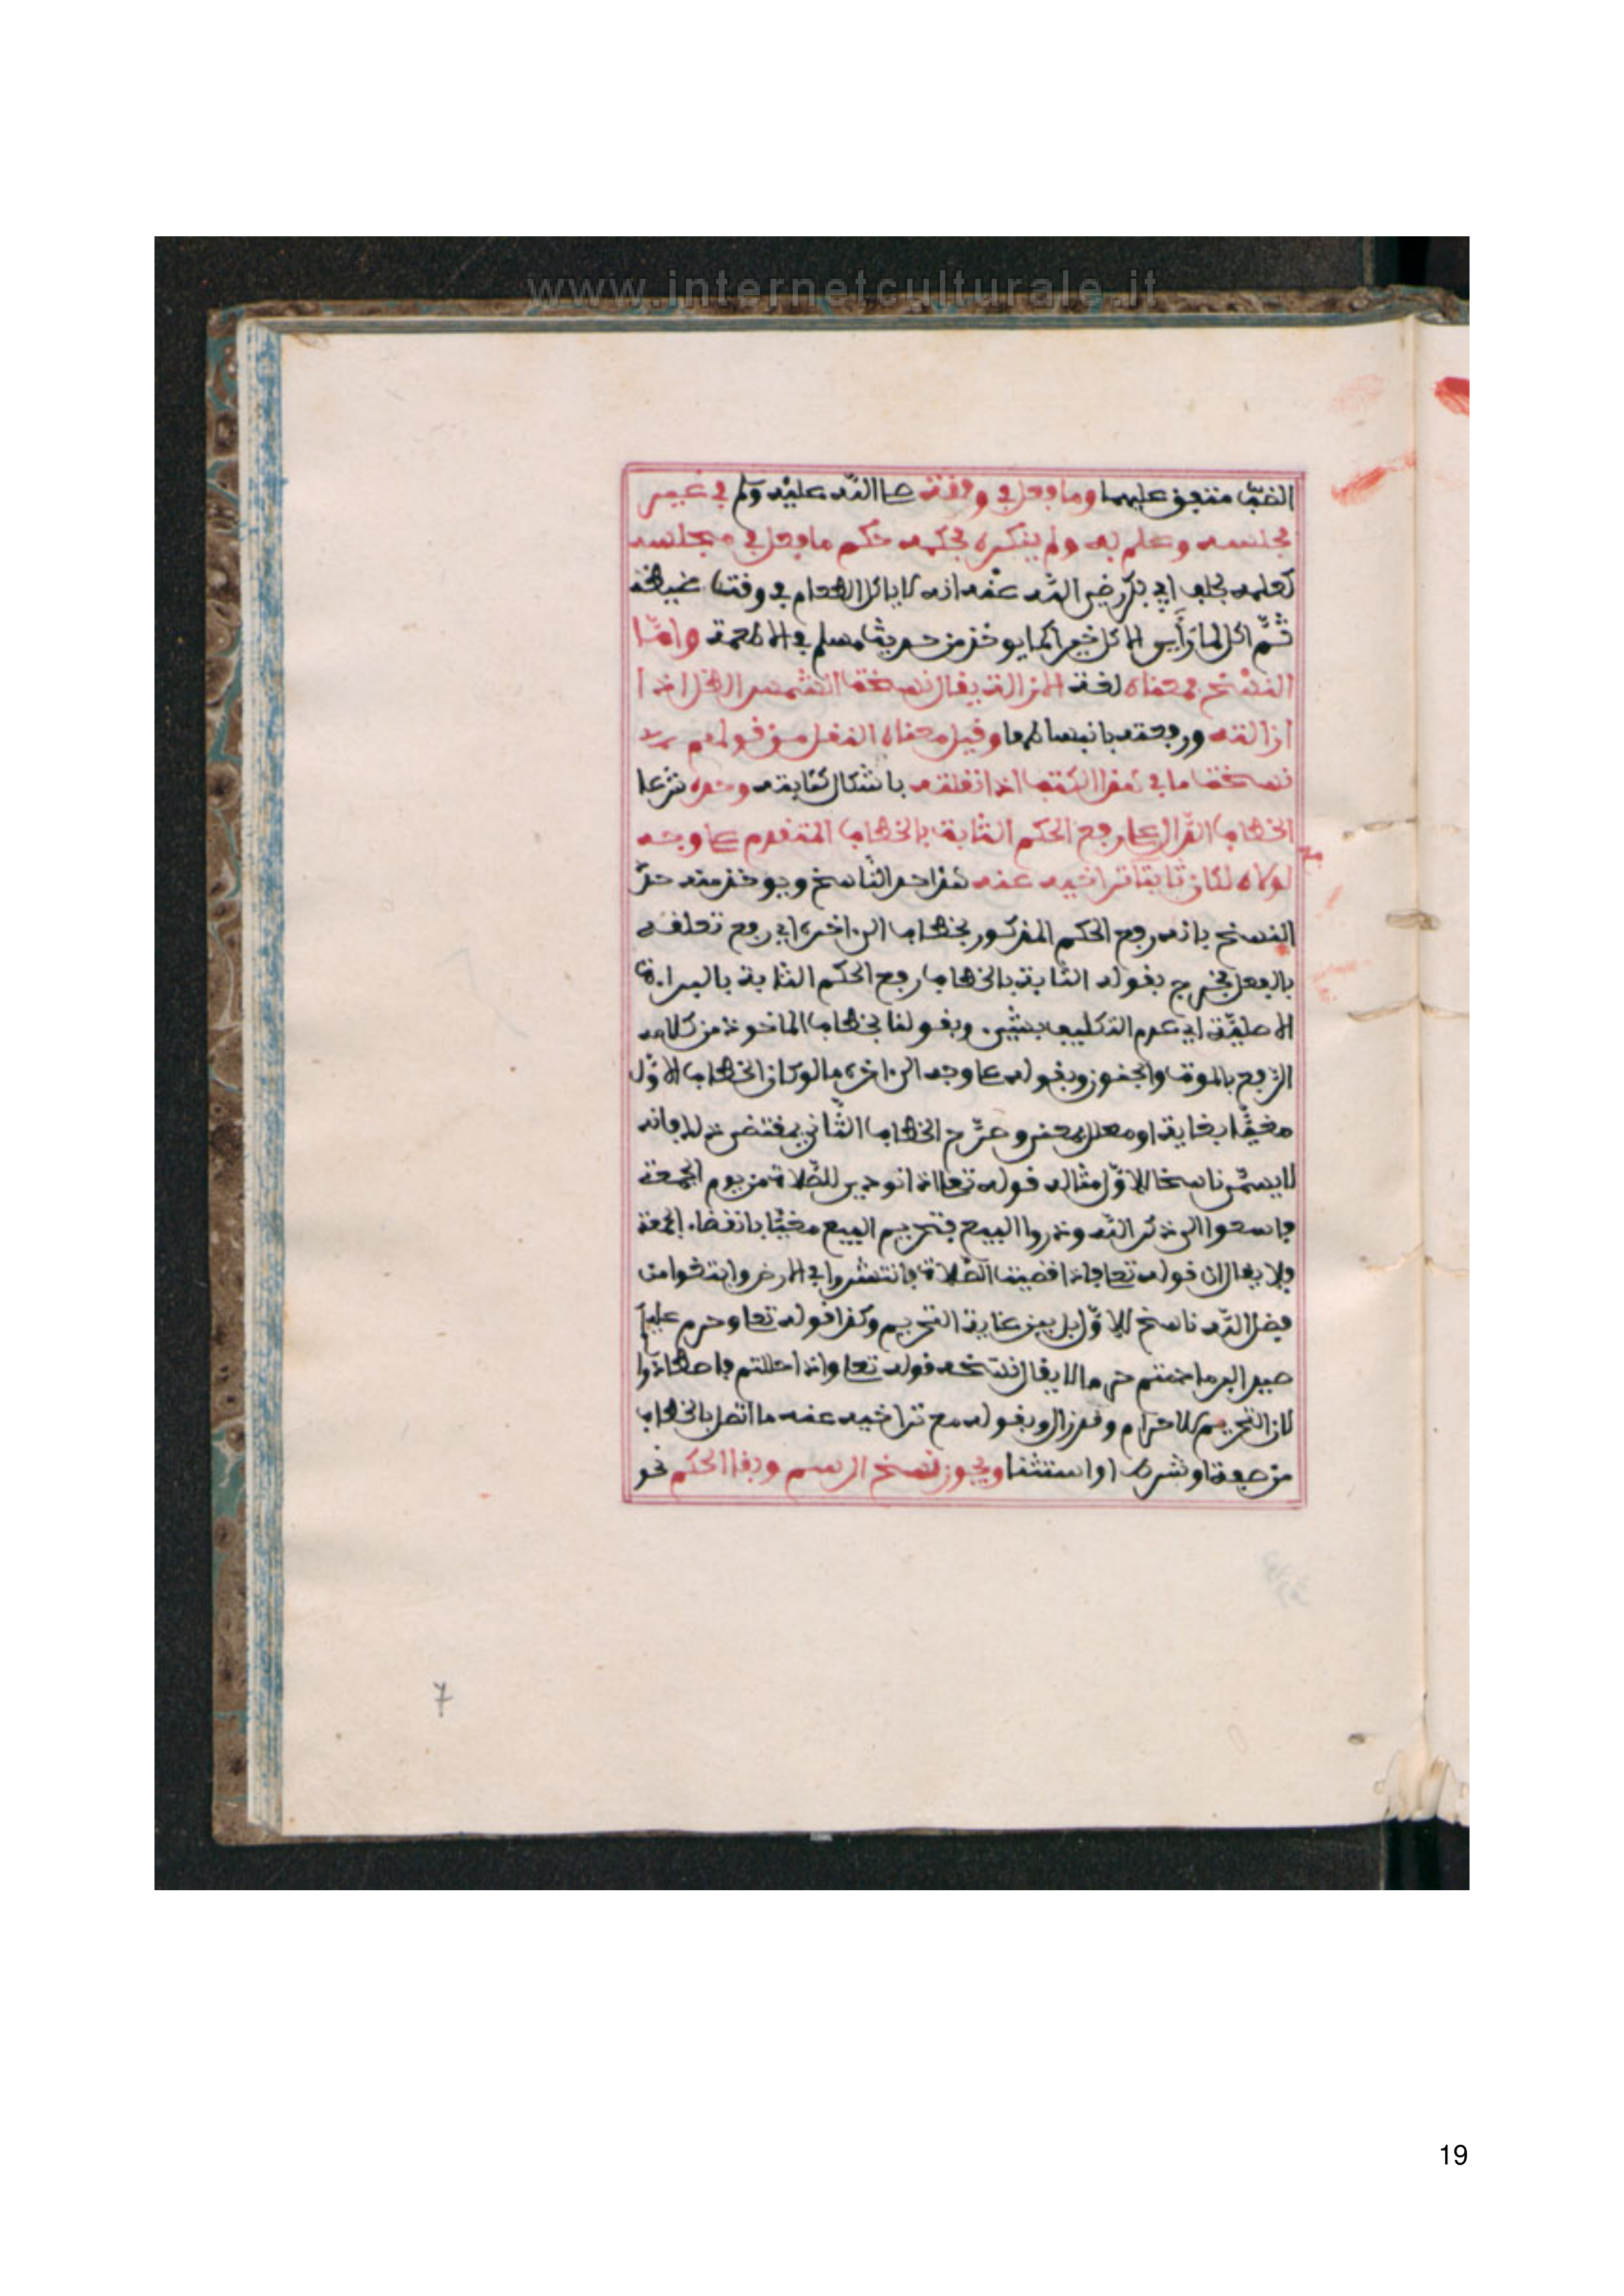 www.internetculturale.it
الضبّ متفق عليهما وما فعل في وقته صلى الله عليه وسلم في غير
مجلسه وعلم به ولم ينكره فحكمه حكم ما فعل في مجلسه
كعلمه بحلف ابي بكر رضي الله عنه انه لا ياكل الطعام في وقت غيظه
ثمّ اكل لما رَأَى الاكل خيرا كما يوخذ من حديث مسلم في الاطعمة وامّا
النسخ فمعناه لغة الازالة يقال نسخت الشمس الظل اذا
ازالته ورفعته بانبساطها وقيل معناه النقل من قولهم
نسخت ما في هذا الكتب اذا نقلته باشكال كتابته وحده شرعا
الخطاب الدّال على رفع الحكم الثابت بالخطاب المتقدم على وجه
لولاه لكان ثابتا تراخيه عنه هذا حد الناسخ ويوخذ منه حدّ
النسخ بانه رفع الحكم المذكور بخطاب الى اخره اي رفع تعلقه
بالفعل فخرج بقوله الثابت بالخطاب رفع الحكم الثابت بالبراءة
الاصليّة اي عدم التكليف بشيء وبقولنا بخطاب الماخوذ من كلامه
الرّفع بالموت والجنون وبقوله على وجه الى اخره ما لو كان الخطاب الاوّل
مغيًّا بغاية او معلل بمعنى وصرّح الخطاب الثّاني بمقتضى ذلك فانه
لا يسمّى ناسخا للاوّل مثاله قوله تعالى اذا نودي للصّلاة من يوم الجمعة
فاسعوا الى ذكر الله وذروا البيع فتحريم البيع مغيّا بانقضاء الجمعة
فلا يقال ان قوله تعالى فاذا قضيت الصّلاة فانتشروا في الارض وابتغوا من
فضل الله ناسخ للاوّل بل بين غاية التحريم وكذا قوله تعالى وحرم عليكم
صيد البر ما دمتم حرما لا يقال نسخه قوله تعالى واذا حللتم فاصطادوا
لان التحريم للاحرام وقد زال وبقوله مع تراخيه عنه ما اتصل بالخطاب
من صفة او شرط او استثنا ويجوز نسخ الرسم وبقا الحكم نحو
7
19